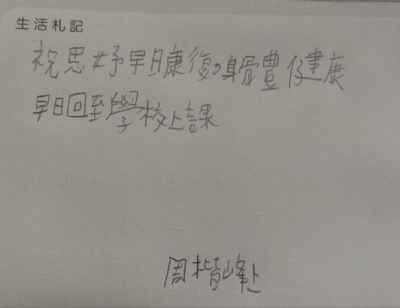 生活札記
祝思妤早日康復，身體健康
早日回至學校上課
周楷峰上